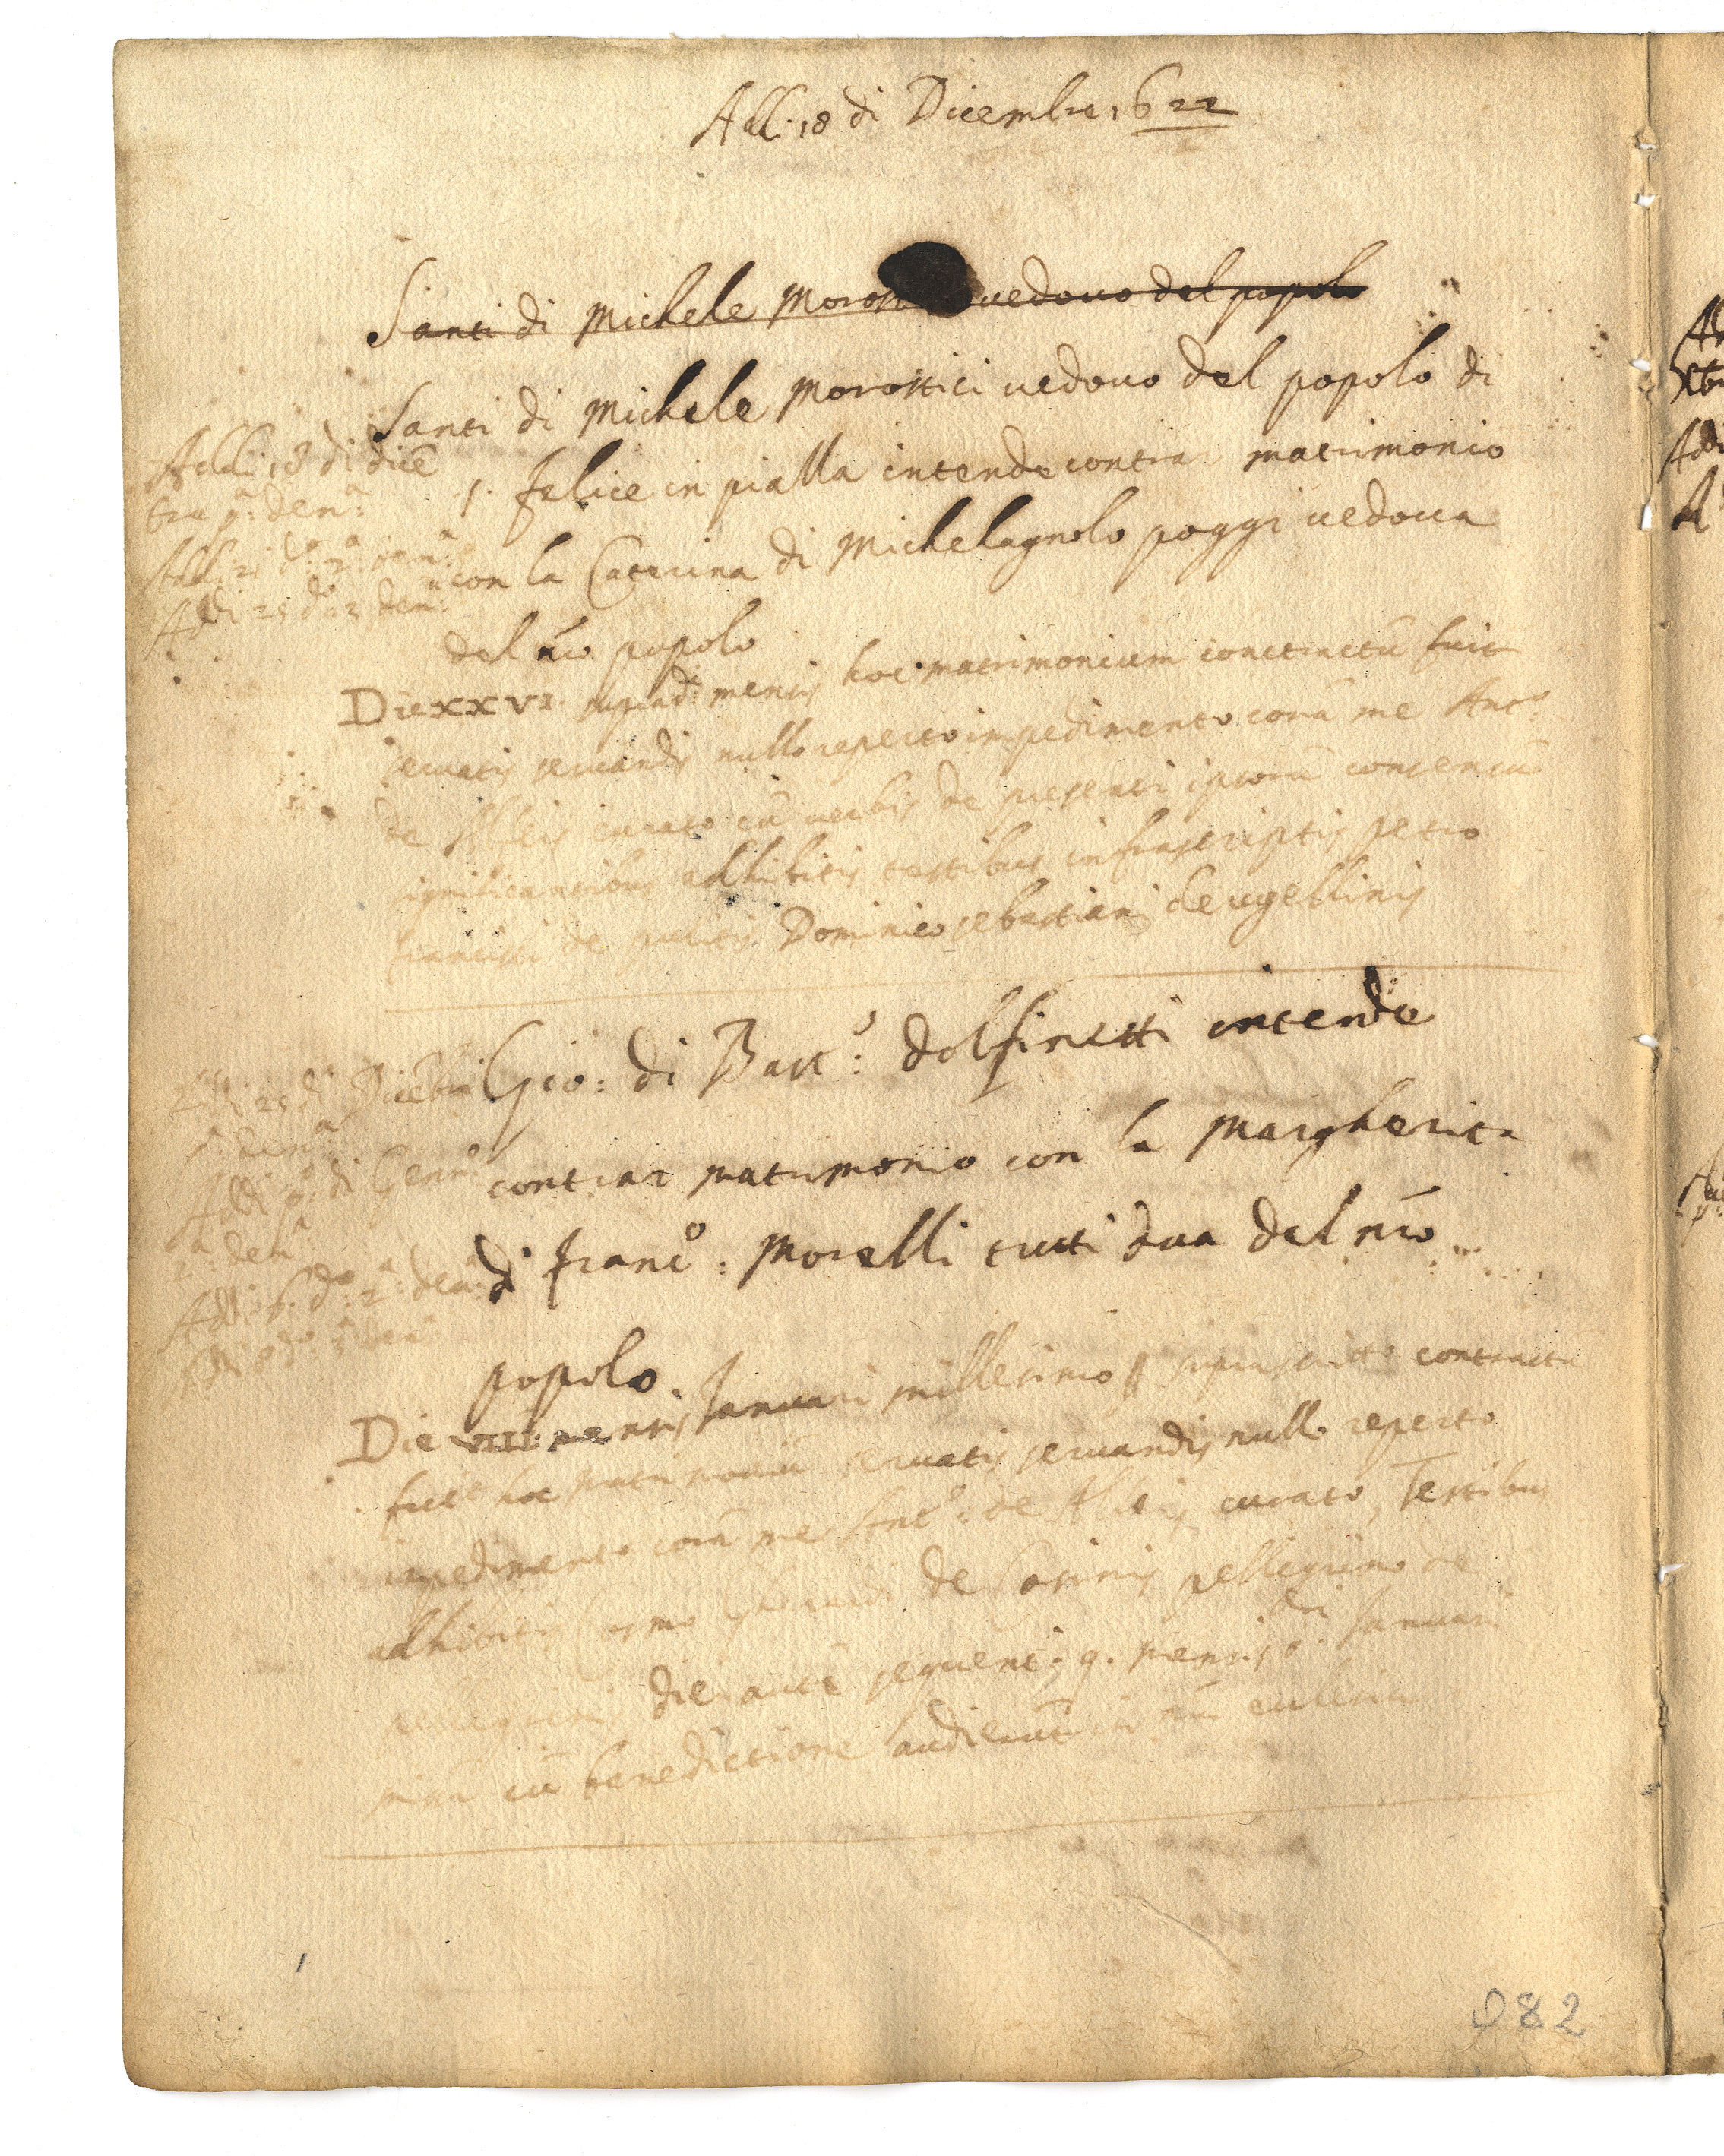 Adi: 18 di Dicembre 1622
Santi di Michele Moros vedovo del popolo
Santi di Michele Morostici vedovo del popolo di
S. felice in pialla intende contrar matrimonio
con la Caterina di Michelagnolo poggi vedova
del nro popolo
Adi: 18 di dicē
bre pᵃ: denᵃ:
Adi: 21 dº: 2ᵃ: denᵃ:
Adi 25 dº 3 denᵃ:
Die XXVI supradⁱ mensis hoc matrimonium contractū fuit
servatis servandis nullo reperto impedimento corā me Antº
de curato cū verbis de presenti ipsorū consensū
significantibus adhibitis testibus infrascriptis petro
francisci de Dominico sebastiani de ugellinis
Gio: di Bartº: dolfinetti intende
contrar matrimonio con la Margherita
di Francº: Morelli tutti dua del nro
popolo.
Adi 25 di Dicēbre
pᵃ: denᵃ
Adi pº: di Gennº
2ᵃ: denᵃ
Adi: 6. dº: 2ᵃ: denᵃ:
Adi 8 dº: 3ᵃ
Die VIII mensis Januari millesimo suprascritto contractū
fuit hoc matrimoniū servatis servandis nullo reperto
impedimento corā me Antº: de curato, Testibus
adhibitis Cosmo de Cosinis pellegrino de
pellegrinis die autē sequenti 9. mensis dⁱ Januari
missā cū benedictione audierūt in nrā ecclesia
982